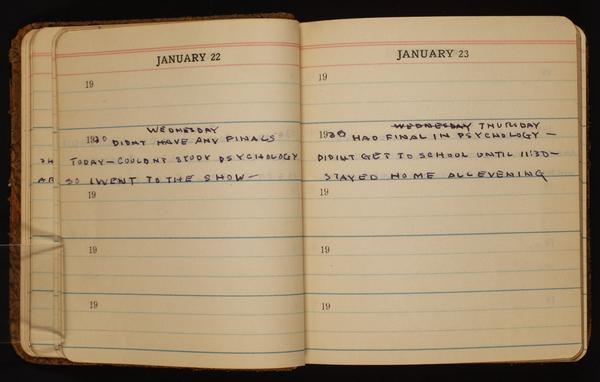 JANUARY 22
19
WEDNESDAY
1930 DIDNT HAVE ANY FINALS
TODAY—COULDNT STUDY PSYCHOLOGY
SO I WENT TO THE SHOW—
19
19
19
JANUARY 23
19
WEDNESDAY THURSDAY
1930 HAD FINAL IN PSYCHOLOGY—
DIDNT GET TO SCHOOL UNTIL 11:30—
STAYED HOME ALL EVENING
19
19
19